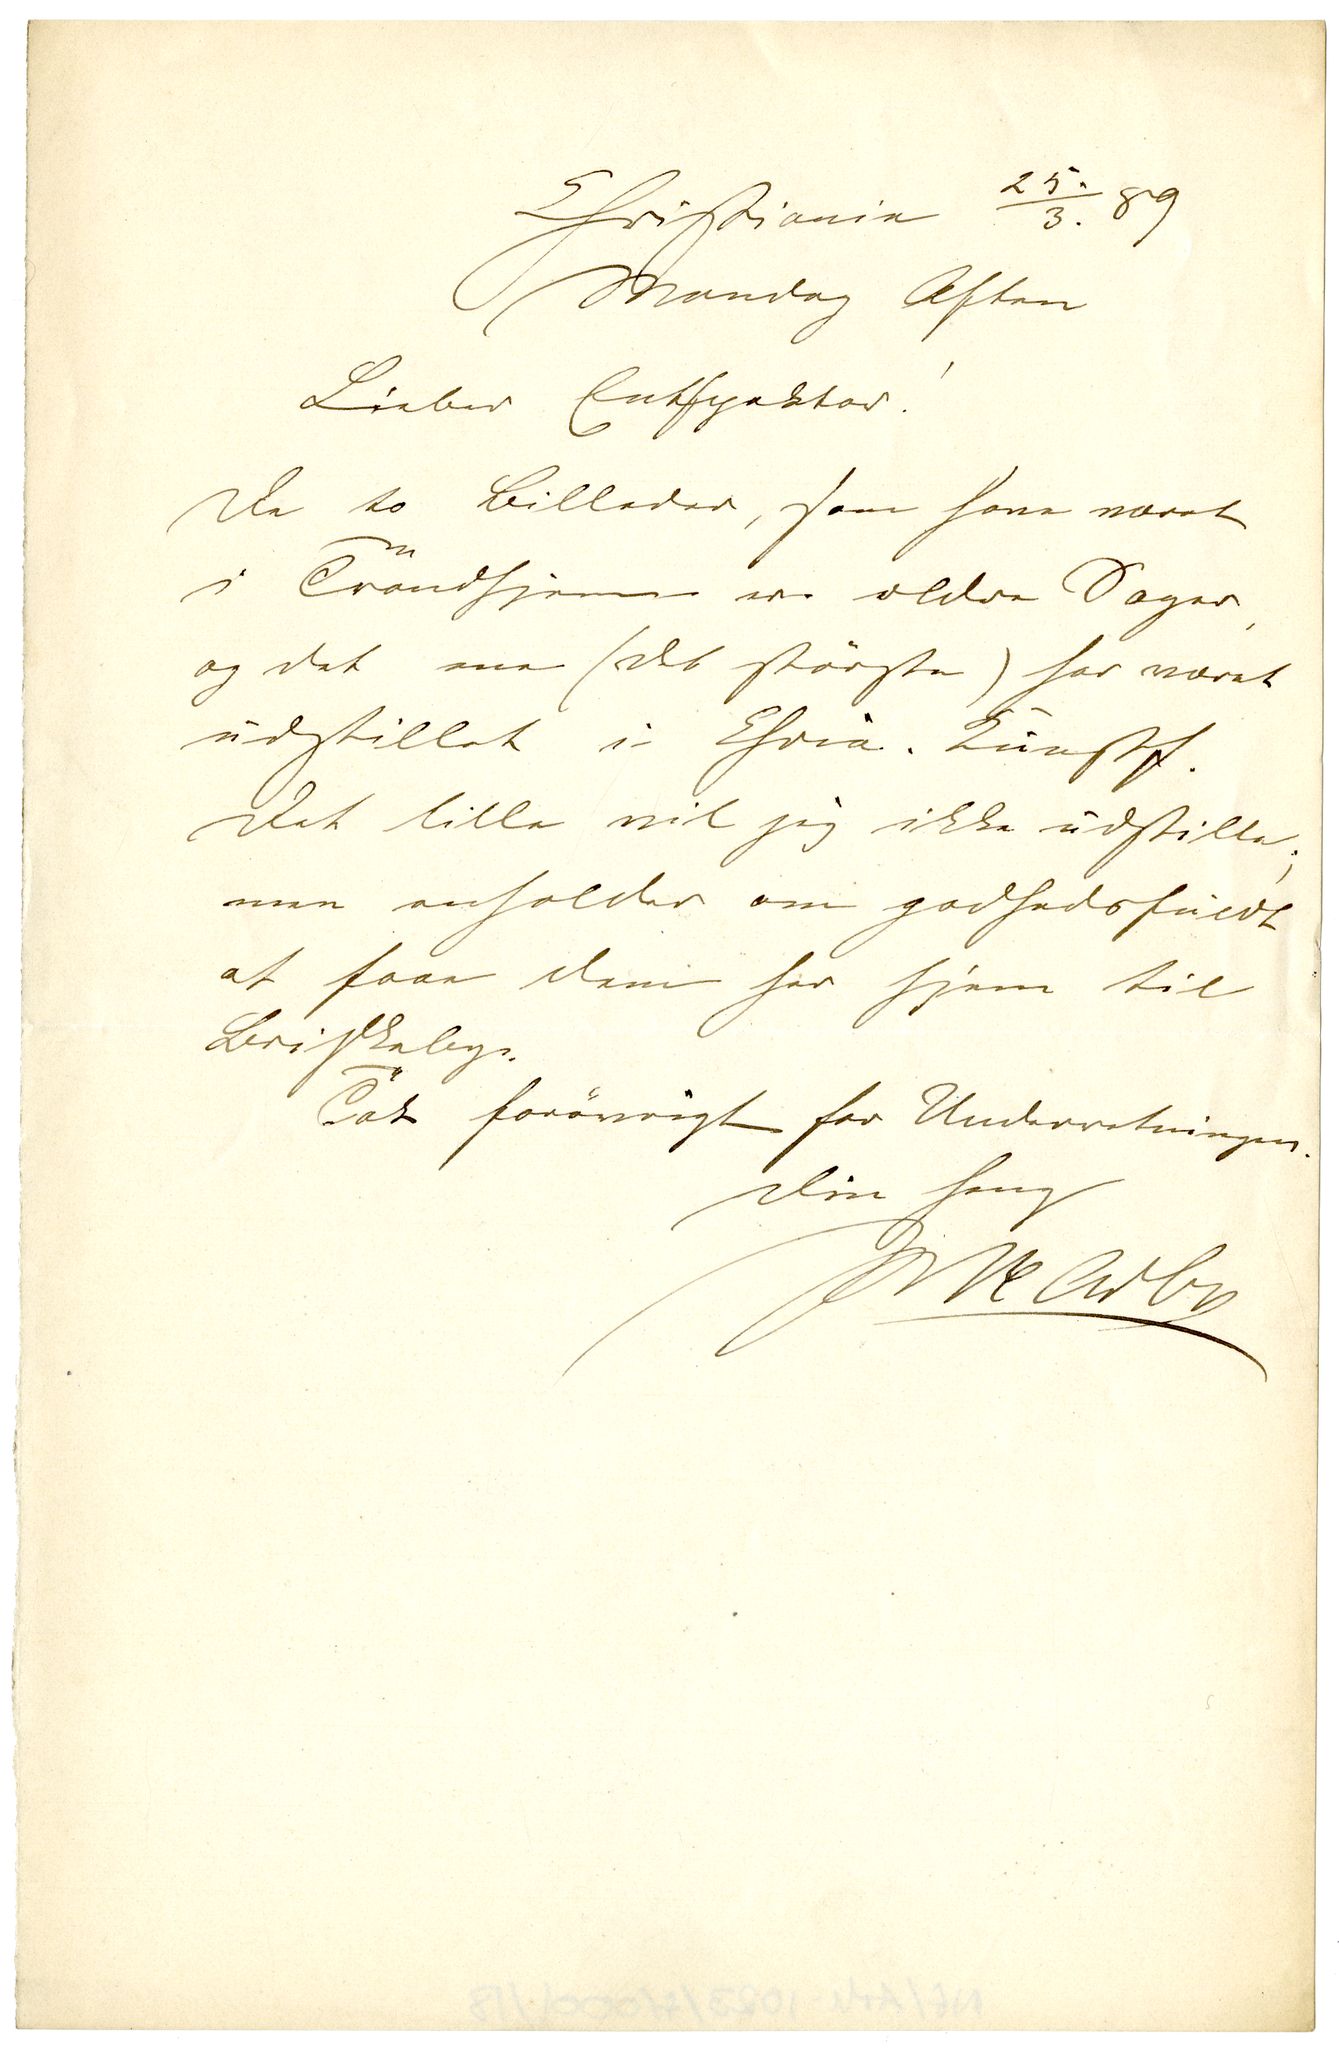 Christiania 25./3. 89
Mandag Aften
Lieber
De to Billeder, som have været
i Trondhjem er ældre Sager,
og det ene (det störste) har været
udstillet i Chria. Kunstf.
Det lille vil jeg ikke udstille;
men anholder om godhedsfuldt
at faae dem her hjem til
Briskeby.
Tak forövrigt for Underretningen.
Din heng